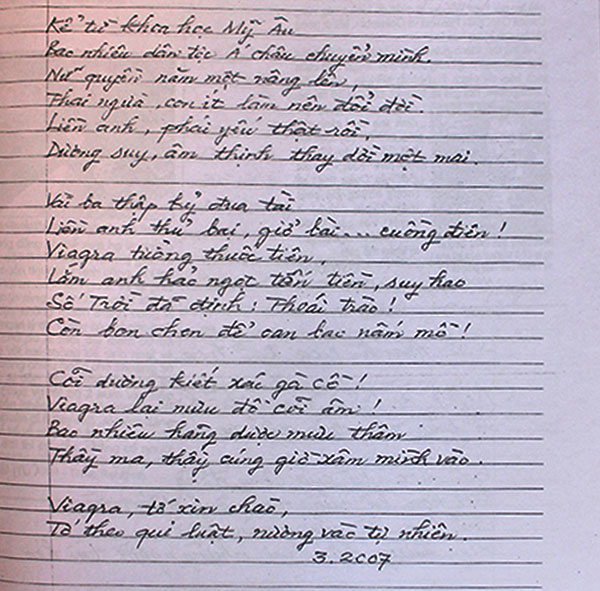 Kể từ khoa học Mỹ Âu
Bao nhiêu dân tộc Á châu chuyển mình.
Nữ quyền năm một nâng lên,
Thai ngừa, con ít làm nên đổi đời.
Liền anh, phái yếu thật rồi,
Dương suy, âm thịnh thay dời một mai.
Vài ba thập kỷ đua tài
Liền anh thử bai, giở bài... cuồng điên!
Viagra tưởng thuốc tiên,
Lắm anh hảo ngọt tốn tiền, suy hao
Số Trời đã định: Thoái trào!
Còn bon chen để can bac nấm mồ!
Cõi dương kiết xác gà cồ!
Viagra lại mưu đồ cõi âm!
Bao nhiêu hãng dược mưu thâm
Thầy ma, thầy cúng giờ xâm mình vào.
Viagra, tớ xin chào,
Tớ theo qui luật, nương vào tự nhiên.
3.2007